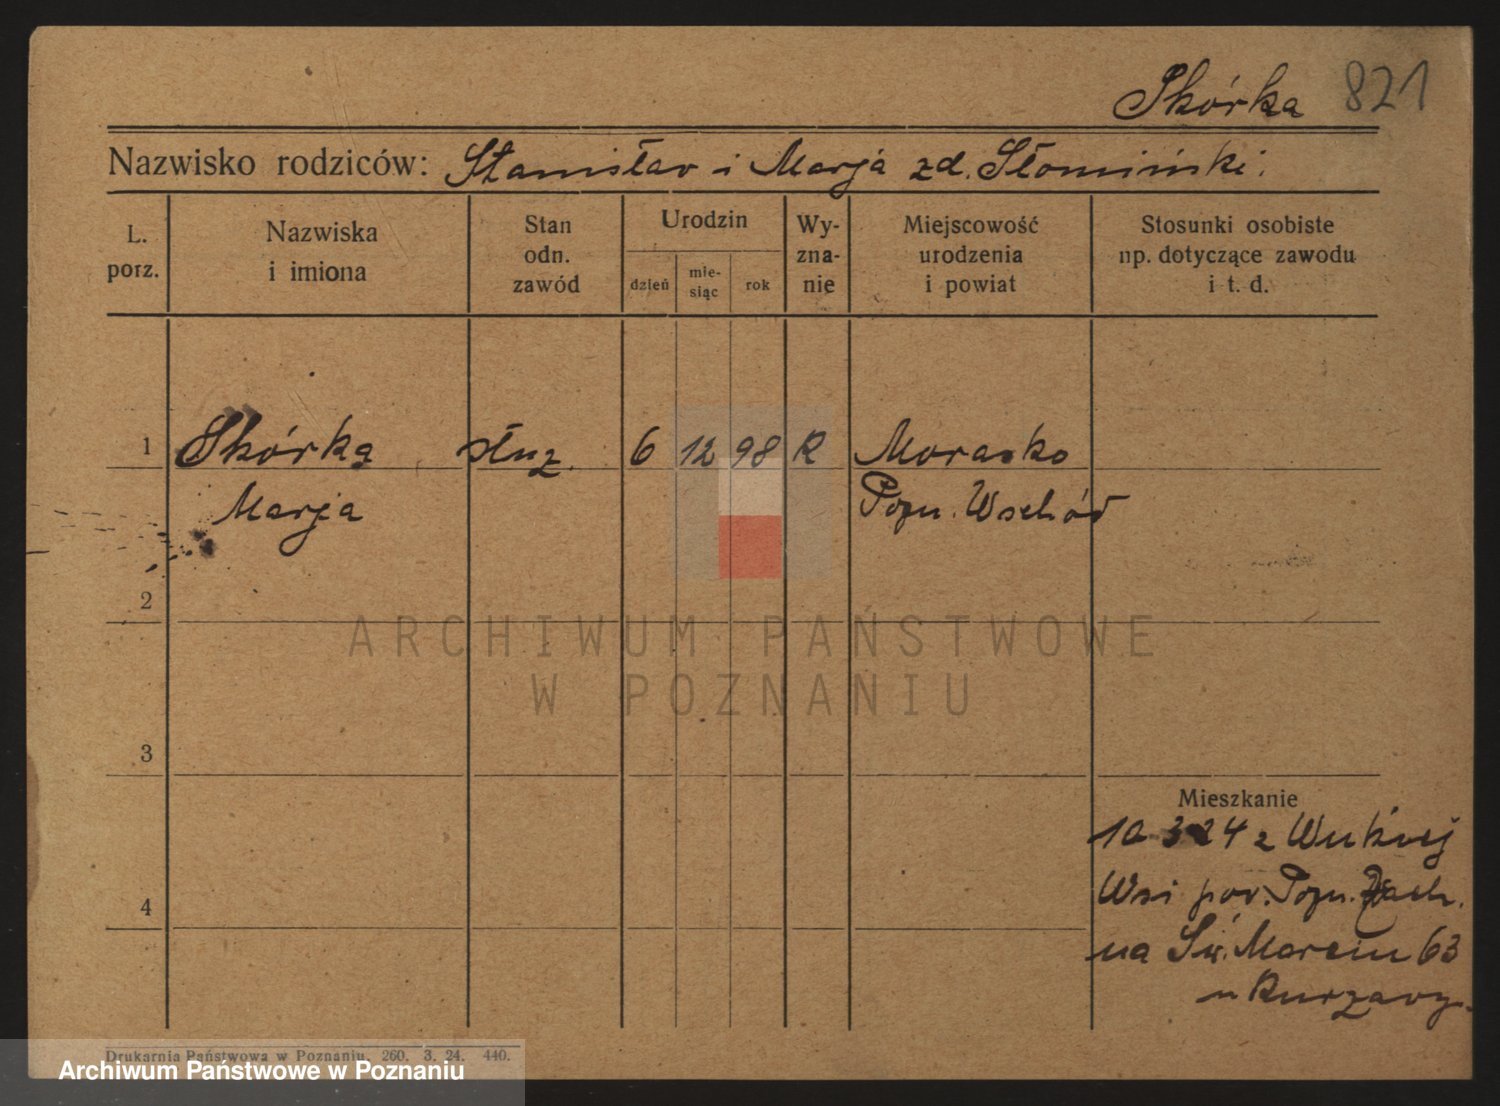 Skórka 821
Nazwisko rodziców: Stanisław i Marja zd. Słomiński.
L.
porz.
Nazwiska
i imiona
Stan
odn.
zawód
Urodzin
dzień
mie-
siąc
rok
Wy-
zna-
nie
Miejscowość
urodzenia
i powiat
Stosunki osobiste
np. dotyczące zawodu
i t. d.
1 Skórka służ. 6 12 98 R Morasko
Marja Pozn. Wschód
2
ARCHIWUM PAŃSTWOWE
W POZNANIU
3
Mieszkanie
10 3 24 z
4
Wsi pow. Pozn. Zach.
na Św. Marcin 63
u
Drukarnia Państwowa w Poznaniu. 260. 3. 24. 440.
Archiwum Państwowe w Poznaniu